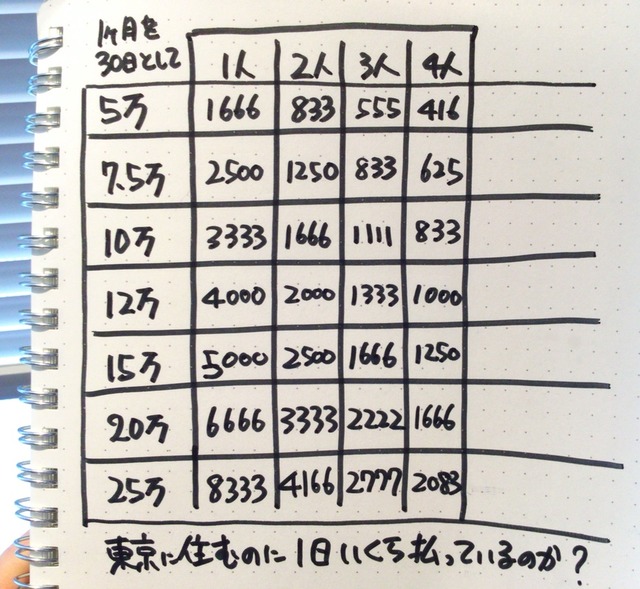 1ヶ月を
30日として
1人 2人 3人 4人
5万 1666 833 555 416
7.5万 2500 1250 833 625
10万 3333 1666 1111 833
12万 4000 2000 1333 1000
15万 5000 2500 1666 1250
20万 6666 3333 2222 1666
25万 8333 4166 2777 2083
東京に住むのに1日いくら払っているのか?